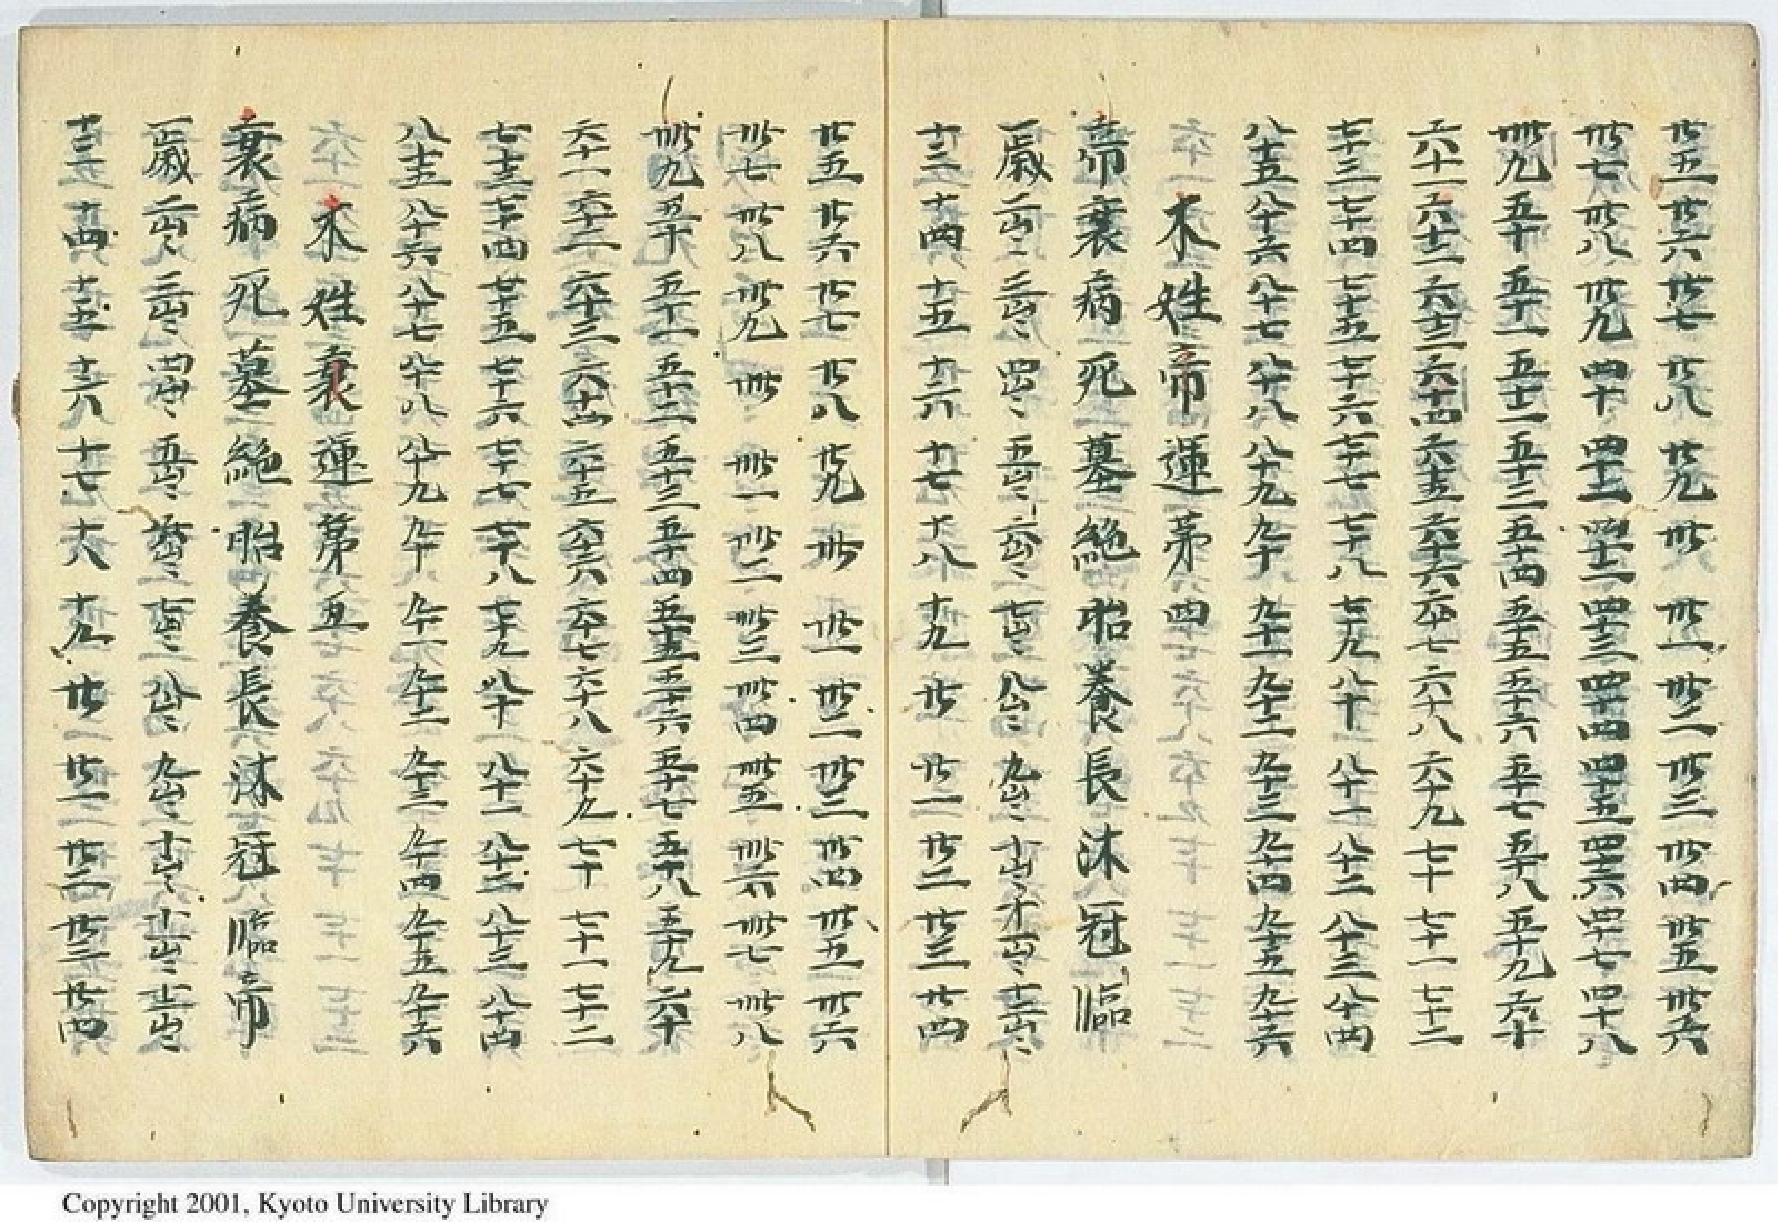 廿五 廿六 廿七 廿八 廿九 卅 卅一 卅二 卅三 卅四 卅五 卅六
卅七 卅八 卅九 四十 四十一 四十二 四十三 四十四 四十五 四十六 四十七 四十八
卌九 五十 五十一 五十二 五十三 五十四 五十五 五十六 五十七 五十八 五十九 六十
六十一 六十二 六十三 六十四 六十五 六十六 六十七 六十八 六十九 七十 七十一 七十二
七十三 七十四 七十五 七十六 七十七 七十八 七十九 八十 八十一 八十二 八十三 八十四
八十五 八十六 八十七 八十八 八十九 九十 九十一 九十二 九十三 九十四 九十五 九十六
木姓帝運第四
帝 衰 病 死 墓 絶 胎 養 長 沐 冠 臨
一歳 二〻 三〻 四〻 五〻 六〻 七〻 八〻 九〻 十〻 十一〻 十二〻
十三 十四 十五 十六 十七 十八 十九 廿 廿一 廿二 廿三 廿四
廿五 廿六 廿七 廿八 廿九 卅 卅一 卅二 卅三 卅四 卅五 卅六
卅七 卅八 卅九 卌 卌一 卌二 卌三 卌四 卌五 卌六 卌七 卌八
卌九 五十 五十一 五十二 五十三 五十四 五十五 五十六 五十七 五十八 五十九 六十
六十一 六十二 六十三 六十四 六十五 六十六 六十七 六十八 六十九 七十 七十一 七十二
七十三 七十四 七十五 七十六 七十七 七十八 七十九 八十 八十一 八十二 八十三 八十四
八十五 八十六 八十七 八十八 八十九 九十 九十一 九十二 九十三 九十四 九十五 九十六
木姓衰運第五
衰 病 死 墓 絶 胎 養 長 沐 冠 臨 帝
一歳 二〻 三〻 四〻 五〻 六〻 七〻 八〻 九〻 十〻 十一〻 十二〻
十三 十四 十五 十六 十七 十八 十九 廿 廿一 廿二 廿三 廿四
Copyright 2001, Kyoto University Library